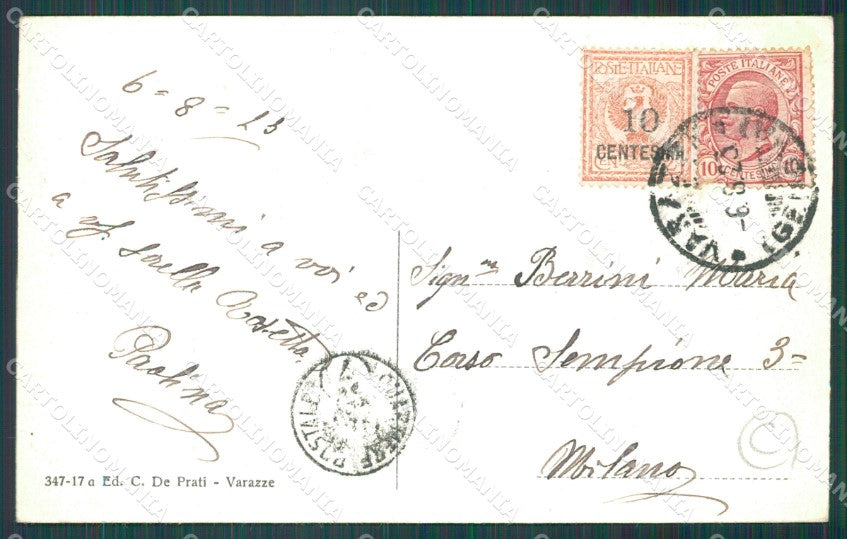 6 = 8 = 23
Salutissimi a voi ed
a
sorella Rosetta
Paolina
347-17 a Ed. C. De Prati - Varazze
POSTE ITALIANE
10
CENTESIMI
POSTE ITALIANE
10 CENTESIMI 10
Sign.na Berrini Maria
Corso Sempione 3=
Milano
CARTOLINOMANIA